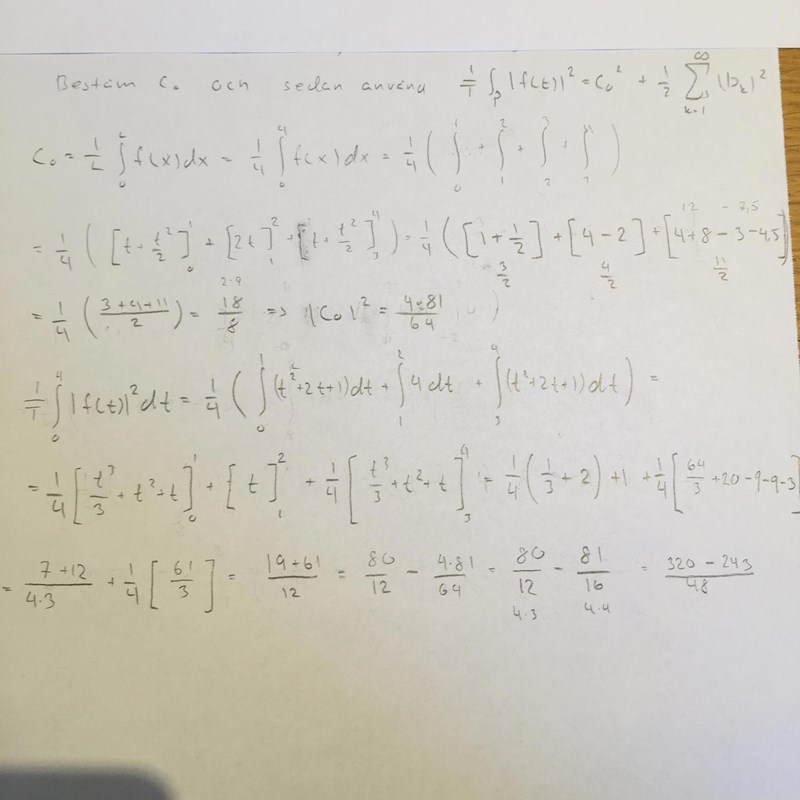 Bestäm C₀ och sedan använd 1/T ∫_P |f(t)|² = C₀² + 1/2 ∑_{k=1}^{∞} |b_k|²
C₀ = 1/L ∫_0^L f(x)dx = 1/4 ∫_0^4 f(x)dx = 1/4 ( ∫_0^1 + ∫_1^2 + ∫_2^3 + ∫_3^4 )
= 1/4 ( [t + t²/2]_0^1 + [2t]_1^2 + [t + t²/2]_3^4 ) = 1/4 ( [1 + 1/2] + [4 - 2] + [4+8-3-4,5]
12 - 7,5
3/2 4/2 11/2
= 1/4 ( (3+4+11)/2 ) = 18/8 => |C₀|² = 4·81/64
2·9
1/T ∫_0^4 |f(t)|² dt = 1/4 ( ∫_0^1 (t²+2t+1)dt + ∫_1^2 4 dt + ∫_3^4 (t²+2t+1)dt ) =
= 1/4 [t³/3 + t² + t]_0^1 + [t]_1^2 + 1/4 [t³/3 + t² + t]_3^4 = 1/4 (1/3 + 2) + 1 + 1/4 [64/3 + 20 - 9 - 9 - 3]
= (7+12)/(4·3) + 1/4 [61/3] = (19+61)/12 = 80/12 - 4·81/64 = 80/12 - 81/16 = (320 - 243)/48
4·3 4·4